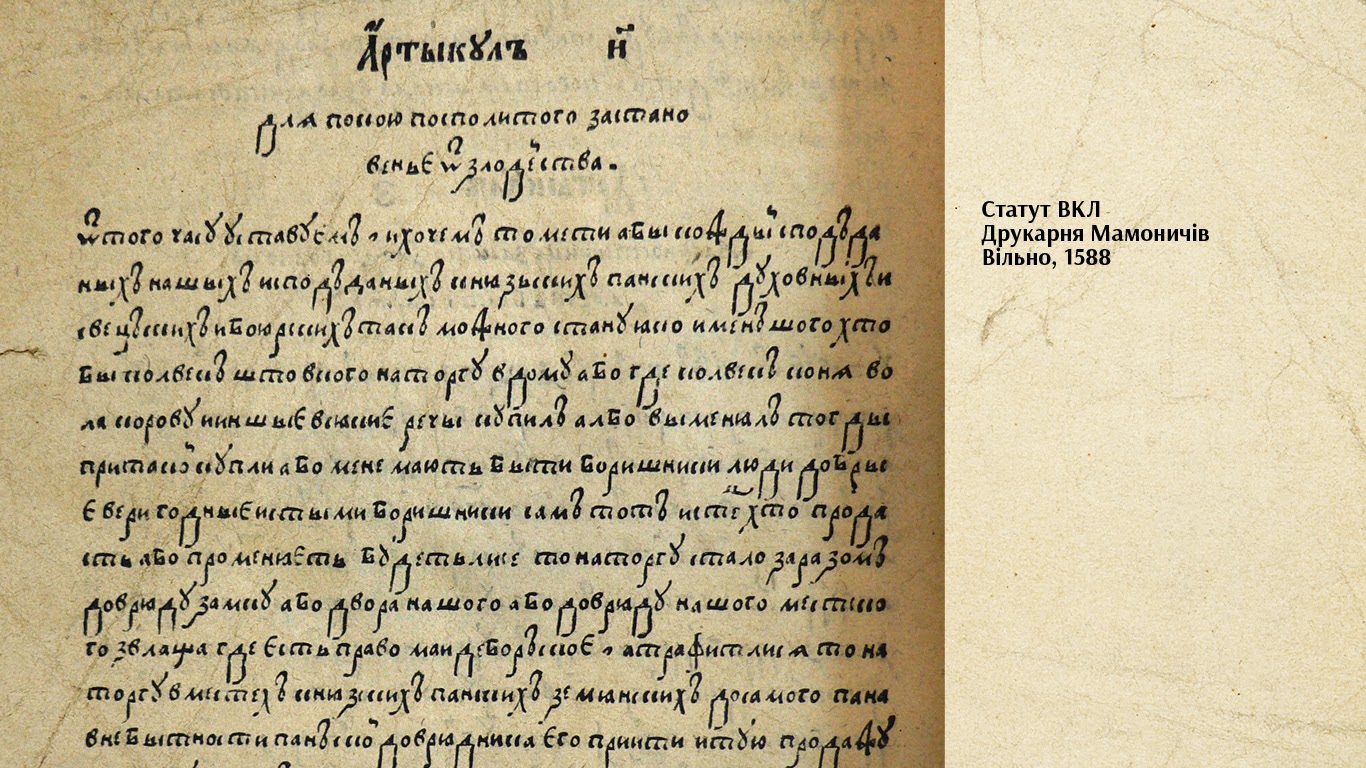 Артыкулъ н҃
для покою посполитого застано
венье ѿ злодѣйства.
Ѿ того часу уставуемъ, и хочемъ то мети абы кождый с подъда
ныхъ нашыхъ и с подъданыхъ кнюзьскихъ панскихъ духовныхъ и
свецъскихъ и боюрскихъ такъ можного стану юко и меньшого хто
бы колвекъ што в кого на торгу в дому або где колвекъ коня во
ла корову и иншые вслюкие речы купилъ албо выменюлъ тогды
при такой купли або мене мають быти боришники люди добрые
вери годные и с тыми боришники самъ тотъ исте хто прода
сть або променюеть будеть ли се то на торгу стало заразомъ
до врюду замку або двора нашого або до врюду нашого местско
го звлаща где есть право майдеборъское, а трафит ли ся то на
торгу в местехъ кнюзскихъ панскихъ земюнскихъ до самого пана
в небытности панъской до врюдника его прийти и тую продажу
Статут ВКЛ
Друкарня Мамоничів
Вільно, 1588